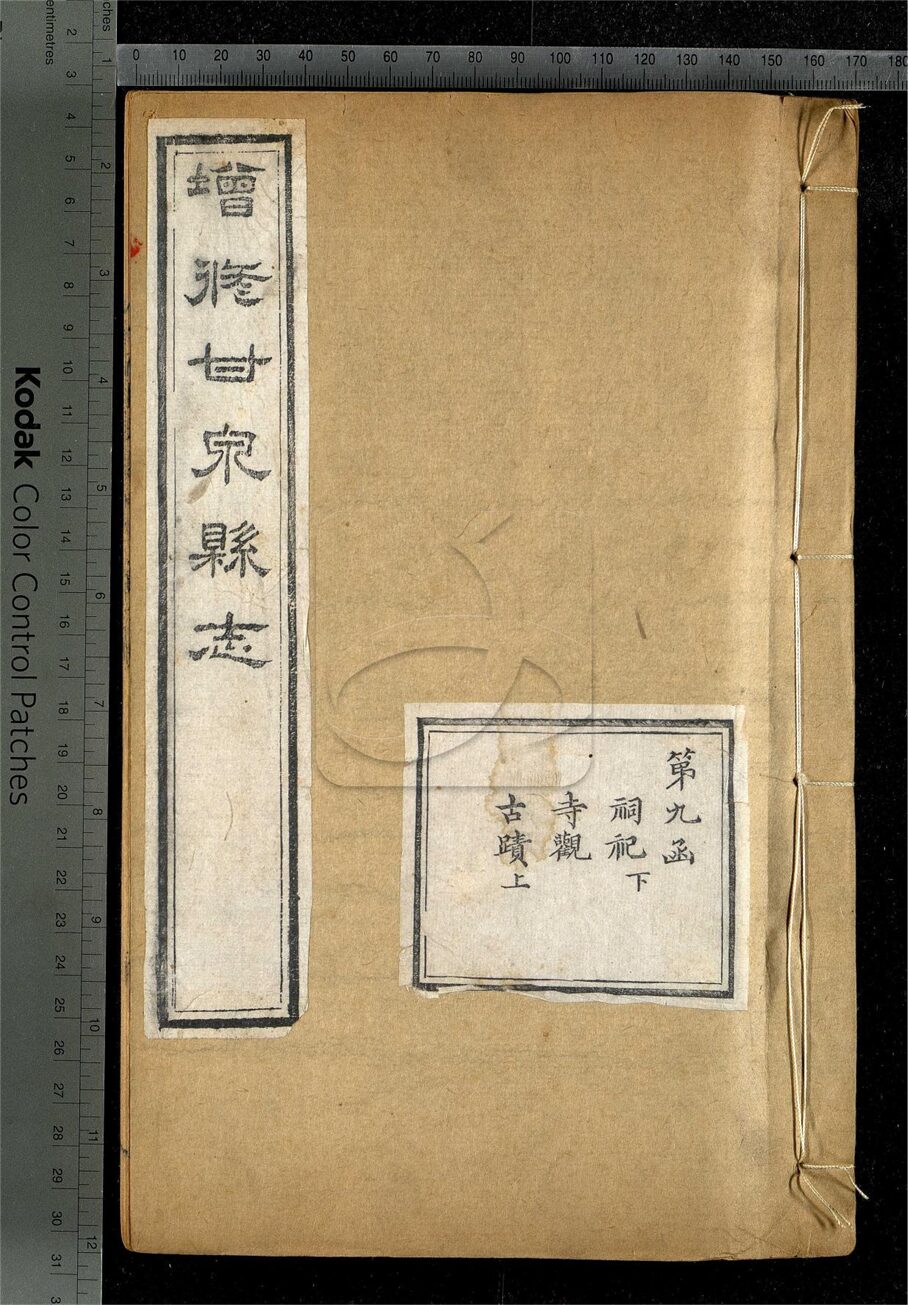 增修甘泉縣志
第九函
祠祀下
寺觀
古蹟上
0 10 20 30 40 50 60 70 80 90 100 110 120 130 140 150 160 170 180
Kodak Color Control Patches
ches 1 2 3 4 5 6 7 8 9 10 11 12
entimetres 2 3 4 5 6 7 8 9 10 11 12 13 14 15 16 17 18 19 20 21 22 23 24 25 26 27 28 29 30 31